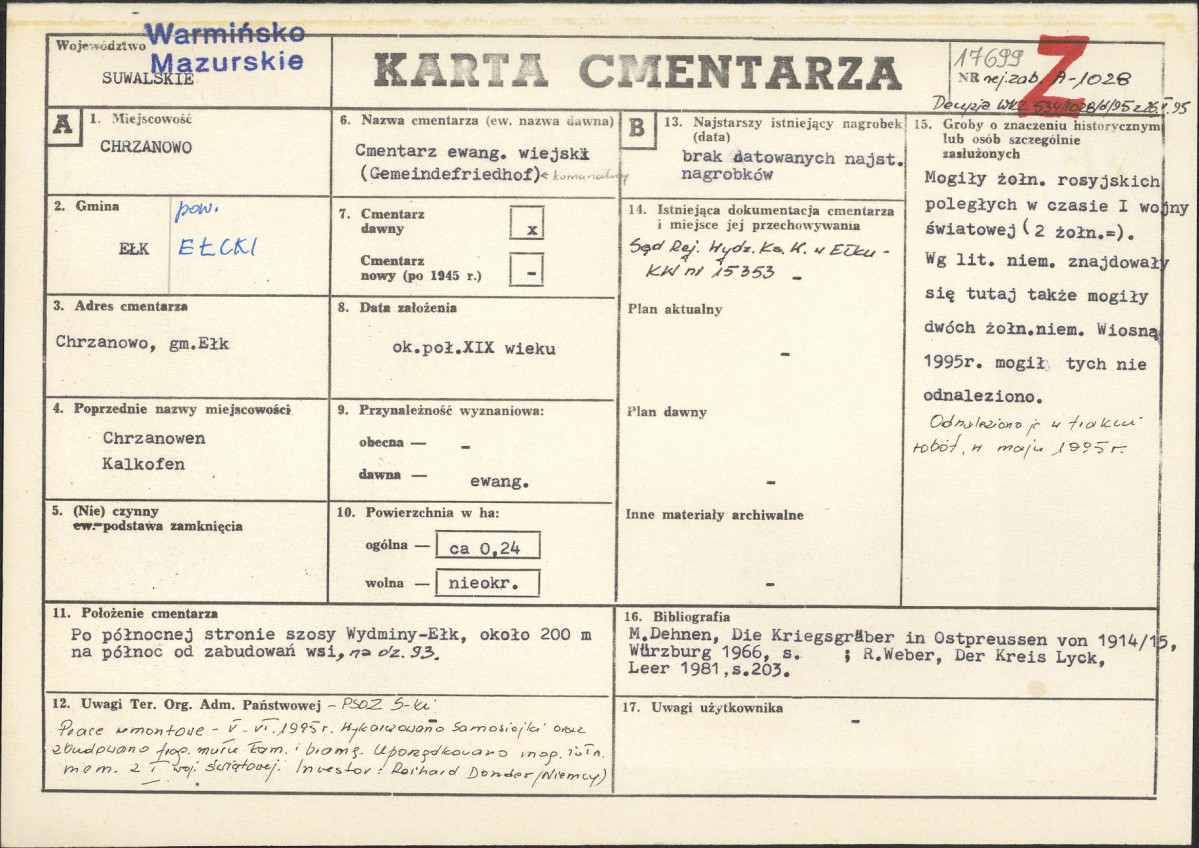 Województwo
Warmińsko
Mazurskie
SUWALSKIE
KARTA CMENTARZA
17699
Z
NR rej. zab. A-1028
Decyzja WKZ 534/1028/d/95 z 26.V.95
A
1. Miejscowość
CHRZANOWO
2. Gmina
EŁK
pow.
EŁCKI
3. Adres cmentarza
Chrzanowo, gm.Ełk
4. Poprzednie nazwy miejscowości
Chrzanowen
Kalkofen
5. (Nie) czynny
ew. podstawa zamknięcia
6. Nazwa cmentarza (ew. nazwa dawna)
Cmentarz ewang. wiejski
(Gemeindefriedhof) < komunalny
7. Cmentarz
dawny
x
Cmentarz
nowy (po 1945 r.)
-
8. Data założenia
ok.poł.XIX wieku
9. Przynależność wyznaniowa:
obecna — -
dawna — ewang.
10. Powierzchnia w ha:
ogólna — ca 0,24
wolna — nieokr.
B
13. Najstarszy istniejący nagrobek
(data)
brak datowanych najst.
nagrobków
14. Istniejąca dokumentacja cmentarza
i miejsce jej przechowywania
Sąd Rej. Wydz. Ks. W. w Ełku -
KW nr 15353 -
Plan aktualny
-
Plan dawny
-
Inne materiały archiwalne
-
15. Groby o znaczeniu historycznym
lub osób szczególnie
zasłużonych
Mogiły żołn. rosyjskich
poległych w czasie I wojny
światowej (2 żołn.=).
Wg lit. niem. znajdowały
się tutaj także mogiły
dwóch żołn.niem. Wiosną
1995r. mogił tych nie
odnaleziono.
Odnaleziono je w trakcie
robót, w maju 1995r.
11. Położenie cmentarza
Po północnej stronie szosy Wydminy-Ełk, około 200 m
na północ od zabudowań wsi, na dz. 93.
12. Uwagi Ter. Org. Adm. Państwowej - PSOZ S-ki
Prace remontowe - V-VI.1995r. Wykarczowano samosiejki oraz
zbudowano frag. muru kam. i bramę. Uporządkowano mog. żołn.
niem. z I woj. światowej. Investor: Reihard Donder (Niemcy)
16. Bibliografia
M.Dehnen, Die Kriegsgräber in Ostpreussen von 1914/15,
Würzburg 1966, s. ; R.Weber, Der Kreis Lyck,
Leer 1981,s.203.
17. Uwagi użytkownika
-